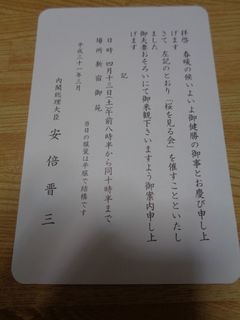 拝啓 春暖の候いよいよ御健勝の御事とお慶び申し上
げます
さて 左記のとおり「桜を見る会」を催すことといたし
ました
御夫妻おそろいにて御来観下さいますよう御案内申し上
げます
記
日時 四月十三日(土)午前八時半から同十時半まで
場所 新宿御苑
当日の服装は平服で結構です
平成三十一年三月
内閣総理大臣 安倍晋三